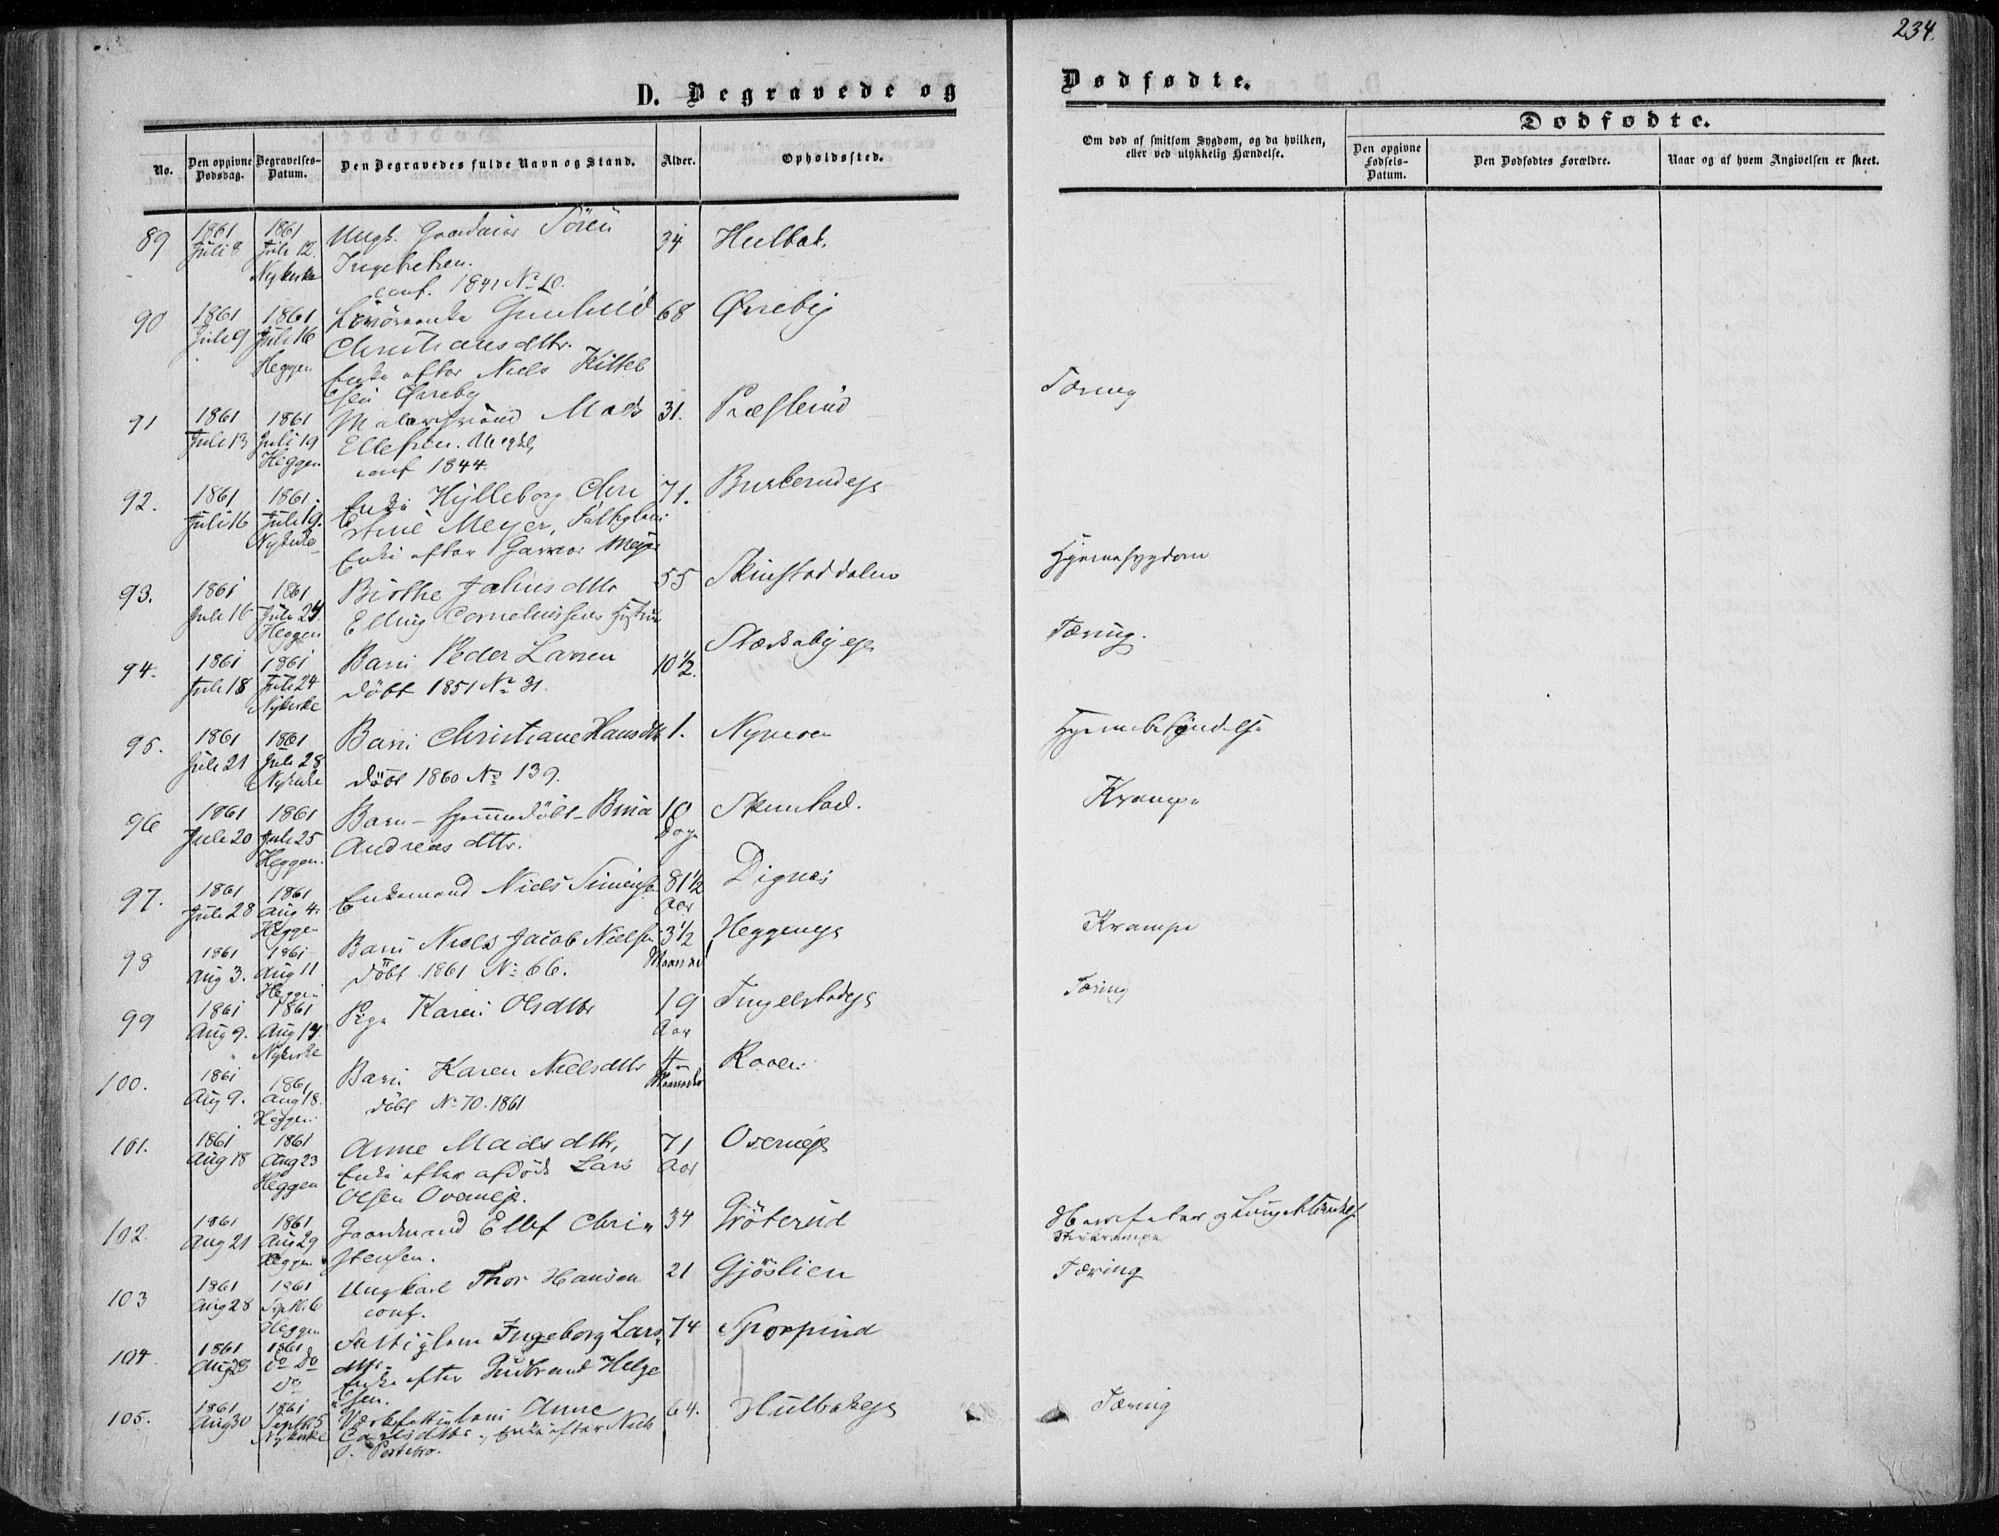 234.
D. Begravede og
Dødfødte.
No.
Den opgivne Dødsdag.
Begravelses-Datum.
Den Begravedes fulde Navn og Stand.
Alder.
Opholdssted.
Om død af smitsom Sygdom, og da hvilken, eller ved ulykkelig Hændelse.
Dødfødte.
Den opgivne Fødsels-Datum.
Den Dødfødtes Forældre.
Naar og af hvem Angivelsen er skeet.
89 1861 Juli 8 1861 Juli 12. Nykirke Ungk. Gaardmand Sören 34 Hulbak.
conf. 1841 No 10.
90 1861 Juli 9 1861 Juli 16 Heggen Gunhild 68 Øvreby
Christiansdttr.
Enke efter Niels Kittel
sen Øvreby
91 1861 Juli 13 1861 Juli 19 Heggen Mads 31. Præsterud Tæring
Ellefsen. Ungkl,
conf 1844.
92. 1861 Juli 16 1861. Juli 19. Nykirke Enke Hylleborg Chri 71.
stine Meyer, Fattiglem
Enke efter Garver Meyer
93. 1861 Juli 16 1861 Juli 24 Heggen Birthe Juliusdttr 55 Skinstaddalen Hjernesygdom
Elling Corneliussens Hustru
94. 1861 Juli 18 1861 Juli 24 Nykirke Barn Peder Larsen 10½. Tæring.
döbt 1851 No 31.
95. 1861 Juli 21 1861 Juli 28 Nykirke Barn Christiane Hansdtr 1. Hjernebetændelse
döbt 1860 No 139.
96 1861 Juli 20 1861 Juli 25 Heggen. Barn - hjemmedöbt - Bina 10 Dage Skinstad. Krampe
Andreas dttr.
97. 1861 Juli 28 1861 Aug 4. Heggen Enkemand Niels Simens. 81½ Aar Dignes
98 1861 Aug 3. 1861 Aug 11 Heggen Barn Niels Jacob Nielsen 3½ Maaned Heggenejs Krampe
döbt 1861 No 66.
99 1861 Aug 9. 1861 Aug 14. Nykirke Pige Karen Olsdttr 19 Aar Tæring
100. 1861 Aug 9. 1861 Aug 18. Heggen. Barn Karen Nielsdttr 4 Maaneder
döbt No 70. 1861
101. 1861 Aug 18 1861 Aug 23 Heggen Anne Madsdttr, 71 Aar Overnejs
Enke efter afdöde Lars
Olsen Overnejs.
102. 1861 Aug 21 1861 Aug 29 Heggen Gaardmand Ellef Chri- 34 Gröterud
stensen.
103 1861 Aug 28 1861 Septb. 6 Heggen Ungkarl Thor Hansen 21 Gjöslien Tæring
conf.
104. 1861 Aug 28 1861 do Do do Fattiglem Ingeborg Lars- 74
dttr
Enke efter Gudbrand Helge
sen.
105. 1861 Aug 30 1861 Septb 5 Nykirke Anne 64. Hulbakejs Tæring
Enke efter Niels